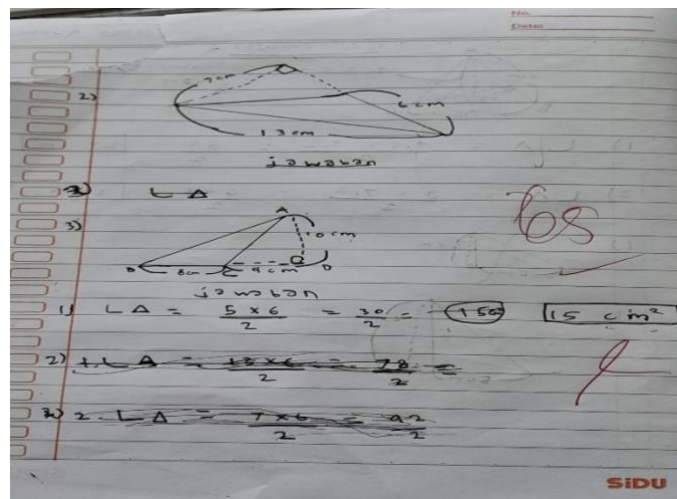 No.
Date:
2)
7cm
6cm
13cm
jawaban
3) L Δ
3)
A
10cm
B 8cm C 9cm D
jawaban
1) L Δ = 5 x 6 / 2 = 30 / 2 = 150 15 cm²
68
2) 1. L Δ = 13 x 6 / 2 = 78 / 2 =
3) 2. L Δ = 7 x 6 / 2 = 42 / 2
SiDU